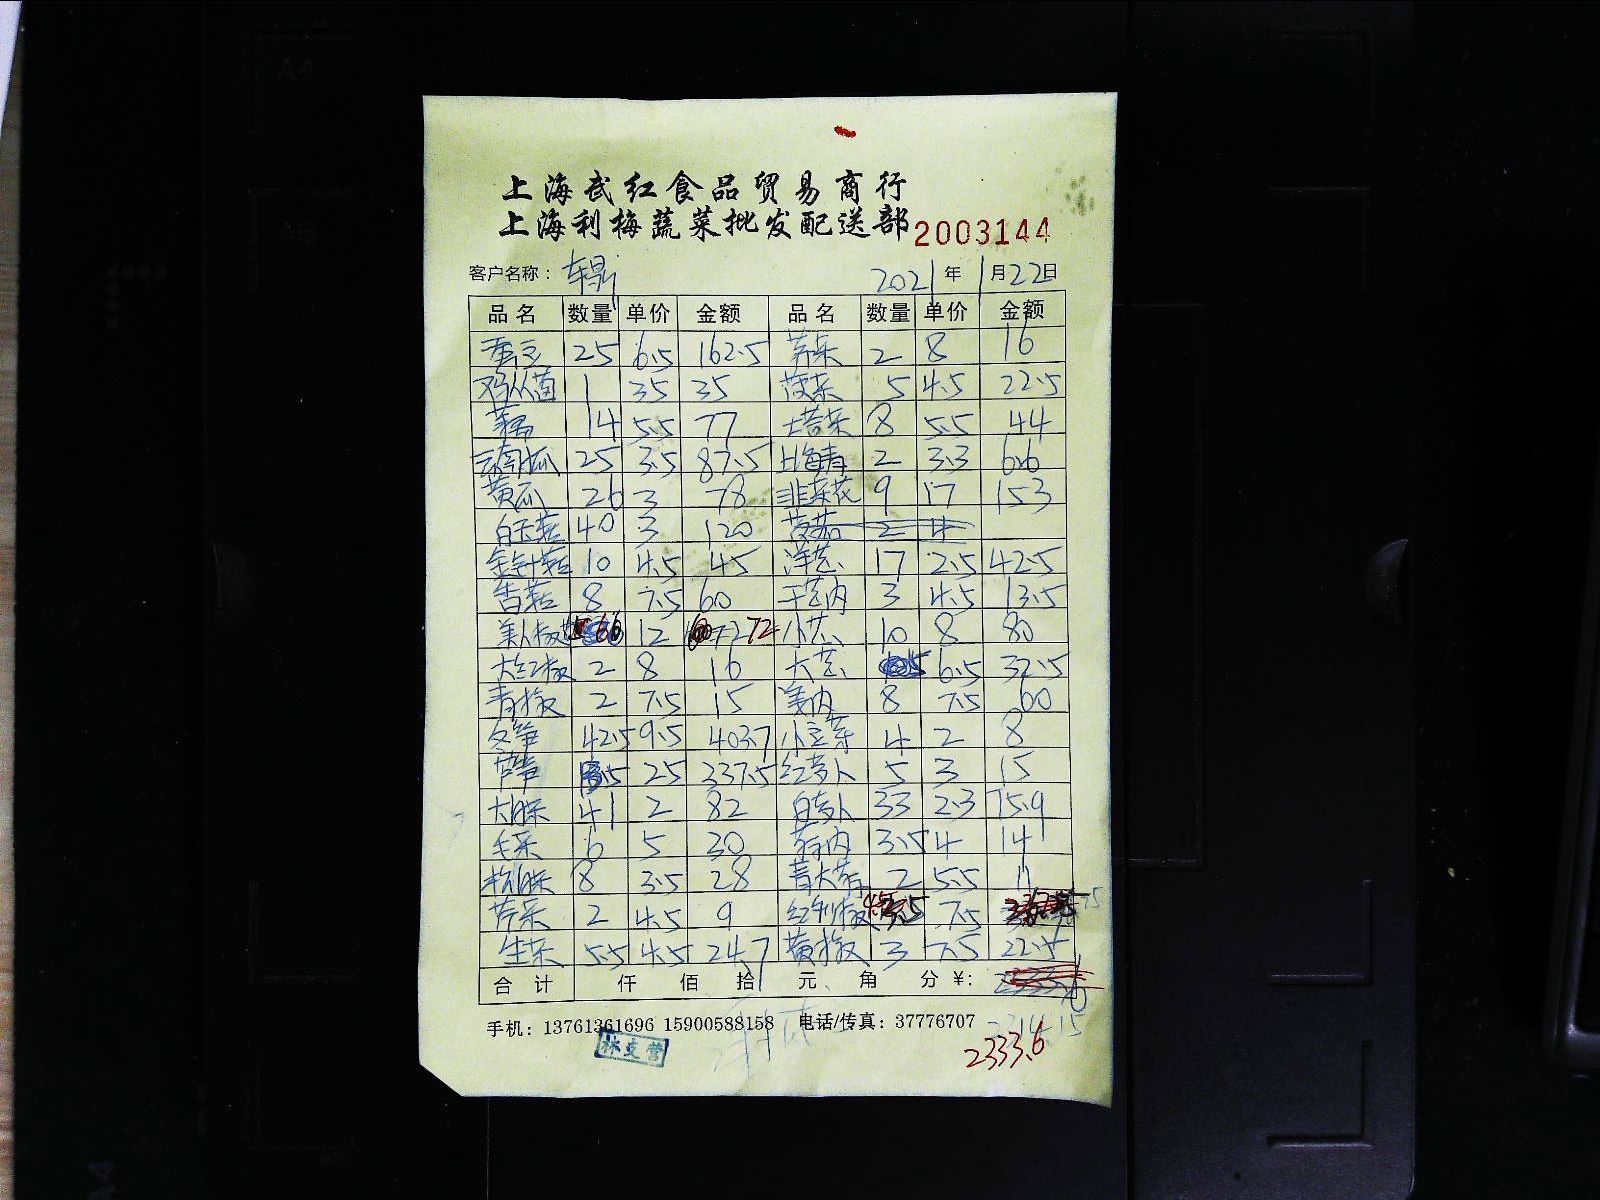 上海武红食品贸易商行
上海利梅蔬菜批发配送部 2003144
客户名称： 2021年1月22日
品名 数量 单价 金额 品名 数量 单价 金额
蚕豆 25 6.5 162.5 芥菜 2 8 16
鸡从菌 1 35 35 菠菜 5 4.5 22.5
莲藕 14 5.5 77 塔菜 8 5.5 44
云南小瓜 25 3.5 87.5 上海青 2 3.3 6.6
黄瓜 26 3 78 韭菜花 9 17 153
白玉菇 40 3 120 2 4
金针菇 10 4.5 45 洋芯 17 2.5 42.5
香菇 8 7.5 60 干芯肉 3 4.5 13.5
美人椒 6 12 72 小芯 10 8 80
大红椒 2 8 16 大芯 5 6.5 32.5
青椒 2 7.5 15 姜肉 8 7.5 60
冬笋 42.5 9.5 403.7 小豆芽 4 2 8
芦笋 13.5 25 337.5 红萝卜 5 3 15
大白菜 41 2 82 白萝卜 33 2.3 75.9
毛菜 6 5 30 肉 3.5 4 14
杭白菜 8 3.5 28 青大 2 5.5 11
芹菜 2 4.5 9 红 椒 7.5
生菜 5.5 4.5 24.7 黄椒 3 7.5 22.5
合计 仟 佰 拾 元 角 分 ¥:
手机：13761361696 15900588158 电话/传真：37776707
林支营
2333.6